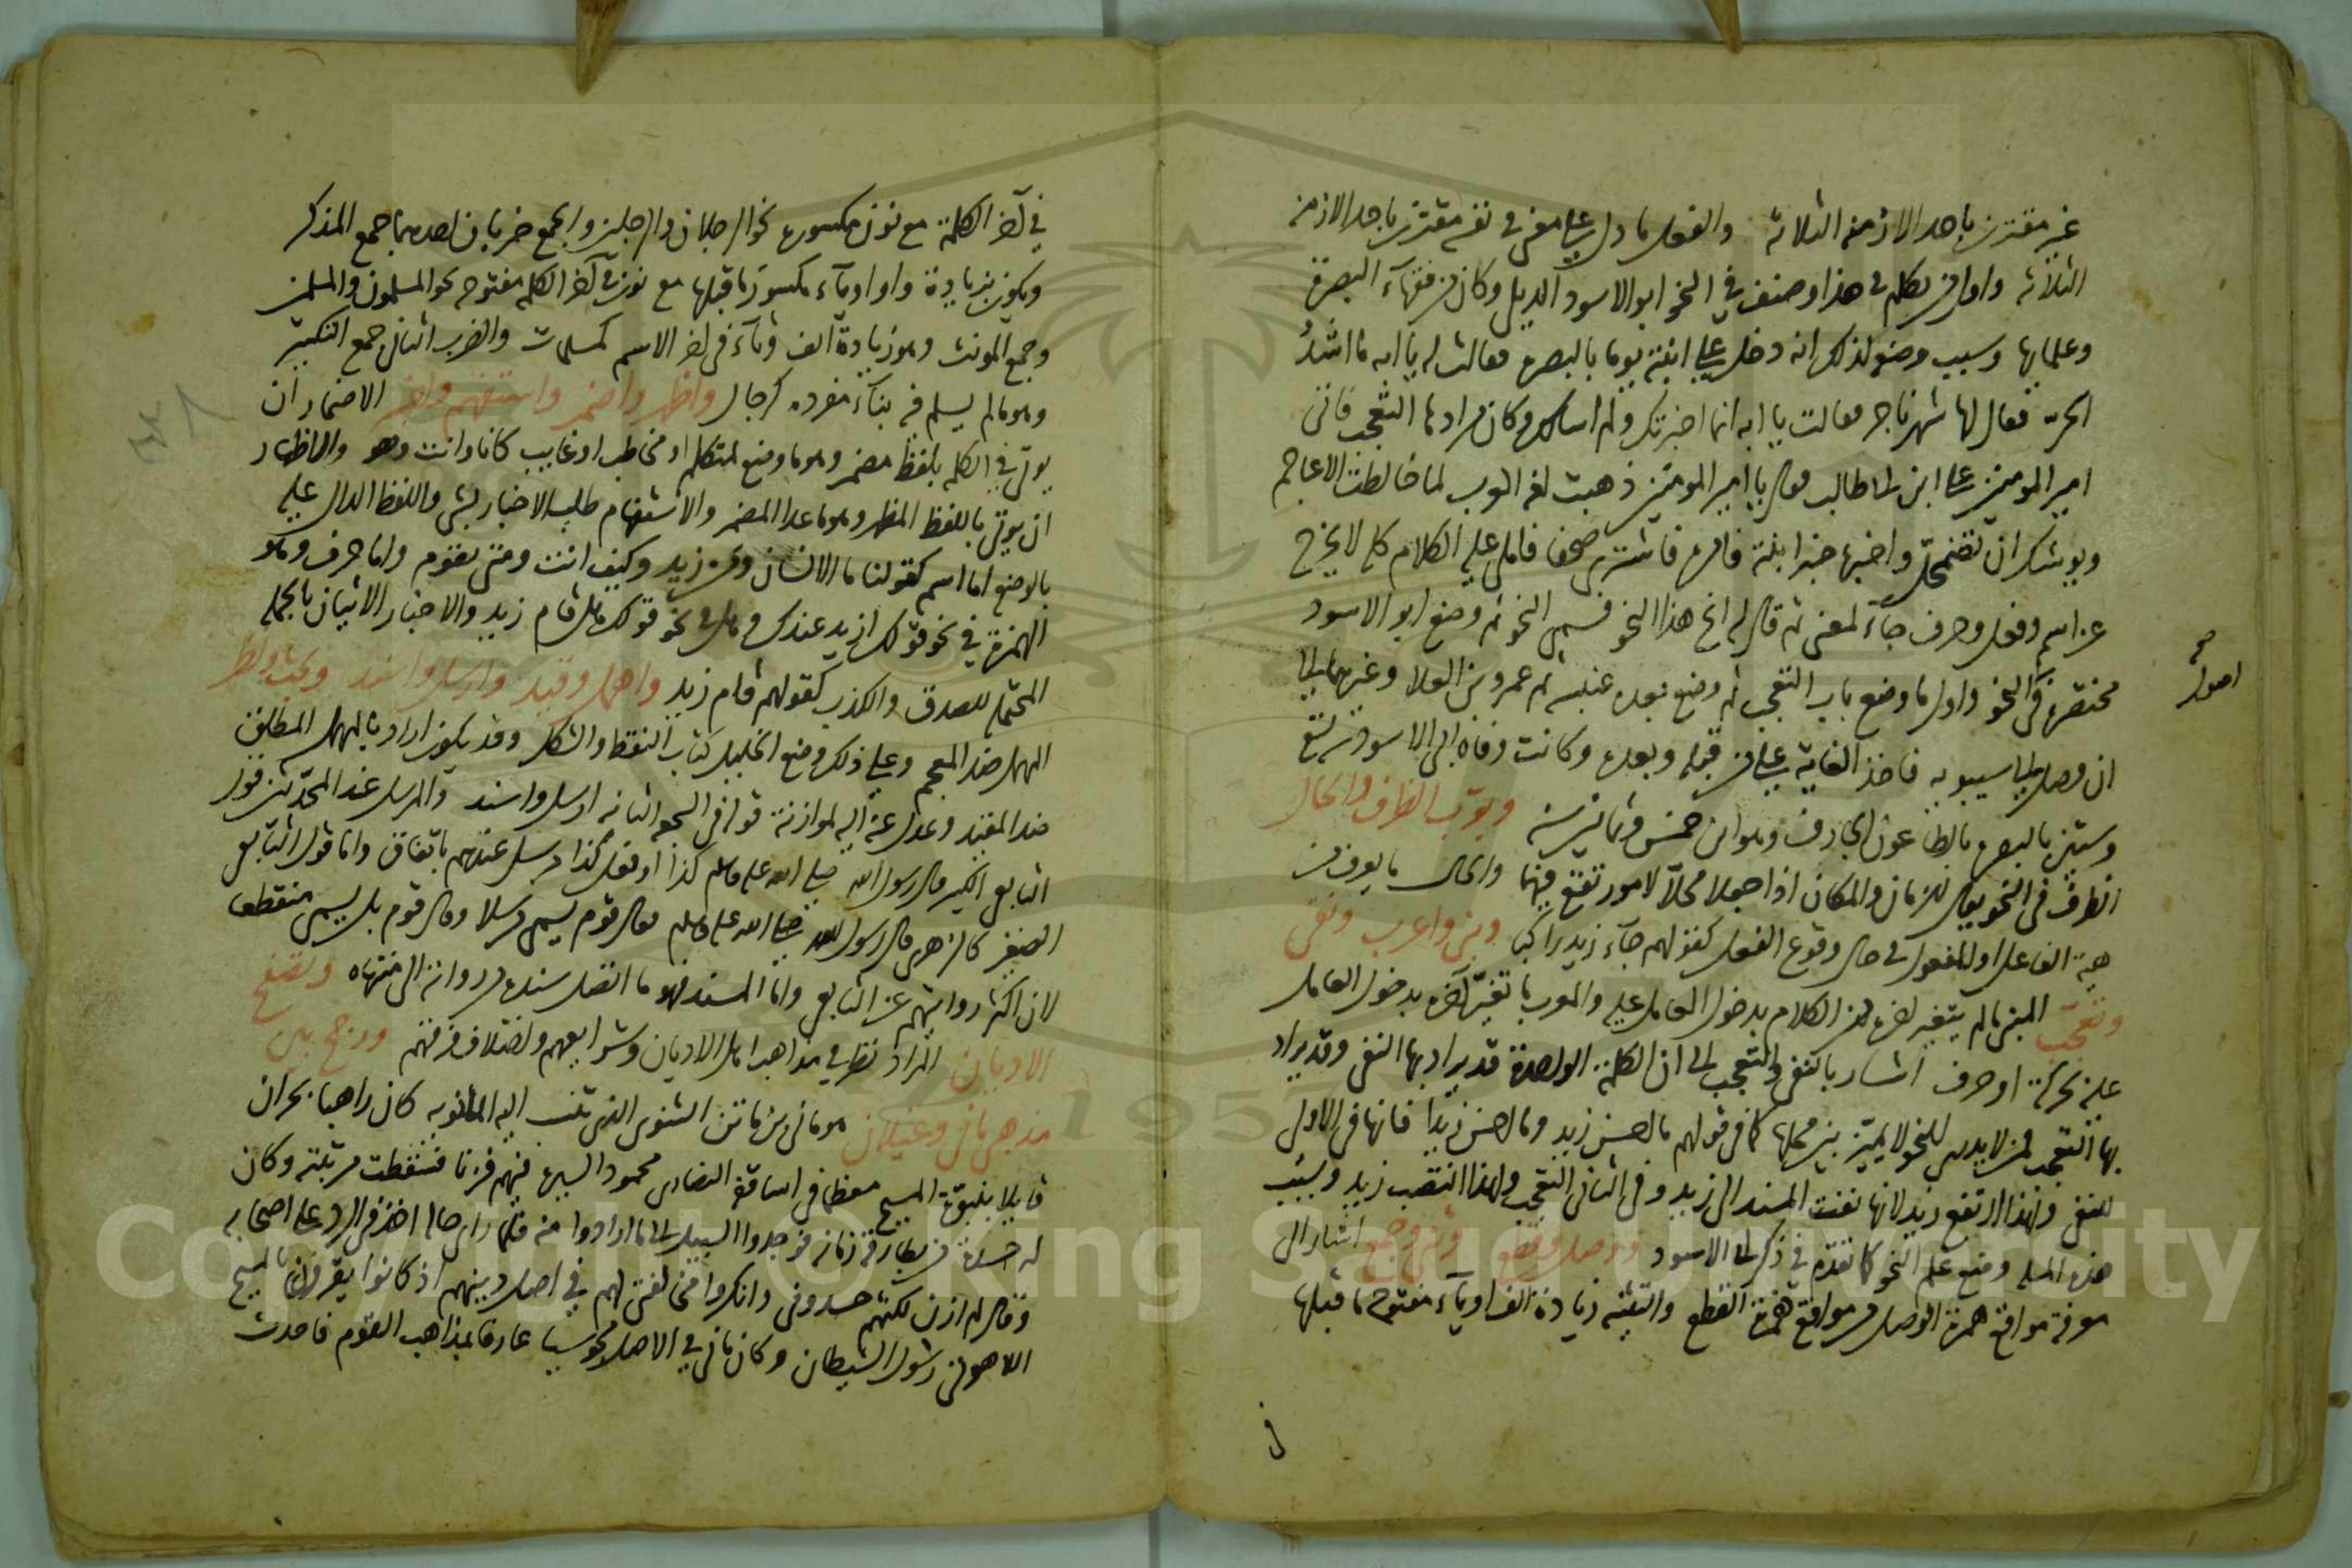 غير مقترن باحد الازمنه الثلاثه والفعل ما دل على معنى في نفسه مقترن باحد الازمنه
الثلاثه واول من تكلم في هذا وصنف في النحو ابو الاسود الديلي وكان من فقهآء البصرة
وعلمايها وسبب وضعه لذلك انه دخل على ابنته يوما بالبصره فقالت له يا ابه ما اشدُ
الحرّ فقال لها شهر ناجر فقالت يا ابه انما اخبرتك ولم اسالك وكان مرادها التعجب فاتى
امير المومنين على ابن ابى طالب فقال يا امير المومنين ذهبت لغه العرب لما خالطت الاعاجم
ويوشك ان تضمحل واخبره خبر ابنته فامره فاشترى صحفا فاملى عليه الكلام كله لا يخرج
عن اسم وفعل وحرف جآء لمعنى ثم قال له انح هذا النحو فسمى النحو ثم وضع ابو الاسود
مختصره في النحو واول ما وضع باب التعجب ثم وضع بعده عنبسه ثم عمرو بن العلا وغيرهما الى
اصول صح
ان وصل الى سيبويه فاخذ الغايه على من قبله وبعده وكانت وفاه ابى الاسود سنه تسع
وستين بالبصره بالطاعون الجارف وهو ابن خمس وثمانين سنه وبوّب الظرف والحال
الظرف في النحو يقال للزمان والمكان اذا جعلا محلّا لامور تقع فيهما والحال ما يعرف من
هيئة الفاعل او المفعول في حال وقوع الفعل كقولهم جآء زيد راكبا وبنى واعرب ونفى
وتعجّب المبنى ما لم يتغير اخره من الكلام بدخول العامل عليه والمعرب ما تغيّر آخره بدخول العامل
عليه بحركة او حرف اشار بالنفى والتعجب الى ان الكلمة الواحدة قد يراد بها النفى وقد يراد
بها التعجب فمن لا يدرى للنحو لا يميّز بين محلها كما في قولهم ما احسن زيد وما احسن زيدا فانها في الاول
للنفى ولهذا ارتفع زيد لانها نفت المسند الى زيد وفى الثانى التعجب ولهذا انتصب زيد وسبب
هذه المسله وضع علم النحو كما تقدم في ذكر ابى الاسود ووصل وقطع وثنى وجمع اشار الى
معرفة مواقع همزة الوصل ومواقع همزة القطع والتثنيه زيادة الف او ياء مفتوح ما قبلها
في
في آخر الكلمة مع نون مكسوره نحو الرجلان والرجلين والجمع ضربان احدهما جمع المذكر
ويكون بزيادة واو او يآء مكسور ما قبلها مع نون في آخر الكلمه مفتوحه نحو المسلمون والمسلمين
وجمع المونث وهو زيادة الف وتآء في اخر الاسم كمسلمات والضرب الثانى جمع التكسير
وهو ما لم يسلم فيه بنآء مفرده كرجال واظهر واضمر واستفهم واخبر الاضمار ان
يوتى في الكلمه بلفظ مضمر وهو ما وضع لمتكلم او مخاطب او غايب كانا وانت وهو والاظهار
ان يوتى باللفظ المظهر وهو ما عدا المضمر والاستفهام طلب الاخبار بشى واللفظ الدال عليه
بالوضع اما اسم كقولنا ما الانسان ومن زيد وكيف انت ومتى تقوم واما حرف وهو
الهمزة في نحو قولك ازيد عندك وهل في نحو قولك هل قام زيد والاخبار الاتيان بالجمله
المحتمله للصدق والكذب كقولهم قام زيد واهمل وقيد وارسل واسند وبحث ونظر
المهمل ضد المعجم وعلى ذلك وضع الخليل كتاب النقط والشكل وقد يكون اراد بالمهمل المطلق
ضد المقيد وعدل عنه اليه لموازنة قوافي السجعه الثانيه ارسل واسند والمرسل عند المحدّثين قول
التابعى الكبير قال رسول الله صلى الله عليه وسلم كذا او فعل كذا مرسل عندهم باتفاق واما قول التابعى
الصغير كالزهرى قال رسول الله صلى الله عليه وسلم فقال قوم يسمى مرسلا وقال قوم بل يسمى منقطعا
لان اكثر روايتهم عن التابعى واما المسند فهو ما اتصل سنده من رواته الى منتهاه وتصفح
الاديان المراد نظر في مذاهب اهل الاديان وشرايعهم واختلاف فرقهم ورجح بين
مذهبى مانى وغيلان هو مانى بن فاتن الثنوى الذى تنسب اليه المانويه كان راهبا بحران
قايلا بنبوّة المسيح معظما في اساقفة النصارى محمود السيرة فيهم فزنا فسقطت مرتبته وكان
له حسدة من بطارقة زمانه فوجدوا السبيل الى ما ارادوا منه فلما راى حاله اخذ في الرد على اصحابه
وقال لم ازن لكنهم حسدونى وانكروا مخالفتى لهم في اصل دينهم اذ كانوا يقرون بالمسيح
اللاهوتى رسول الشيطان وكان مانى في الاصل مجوسيا عارفا بمذاهب القوم فاحدث